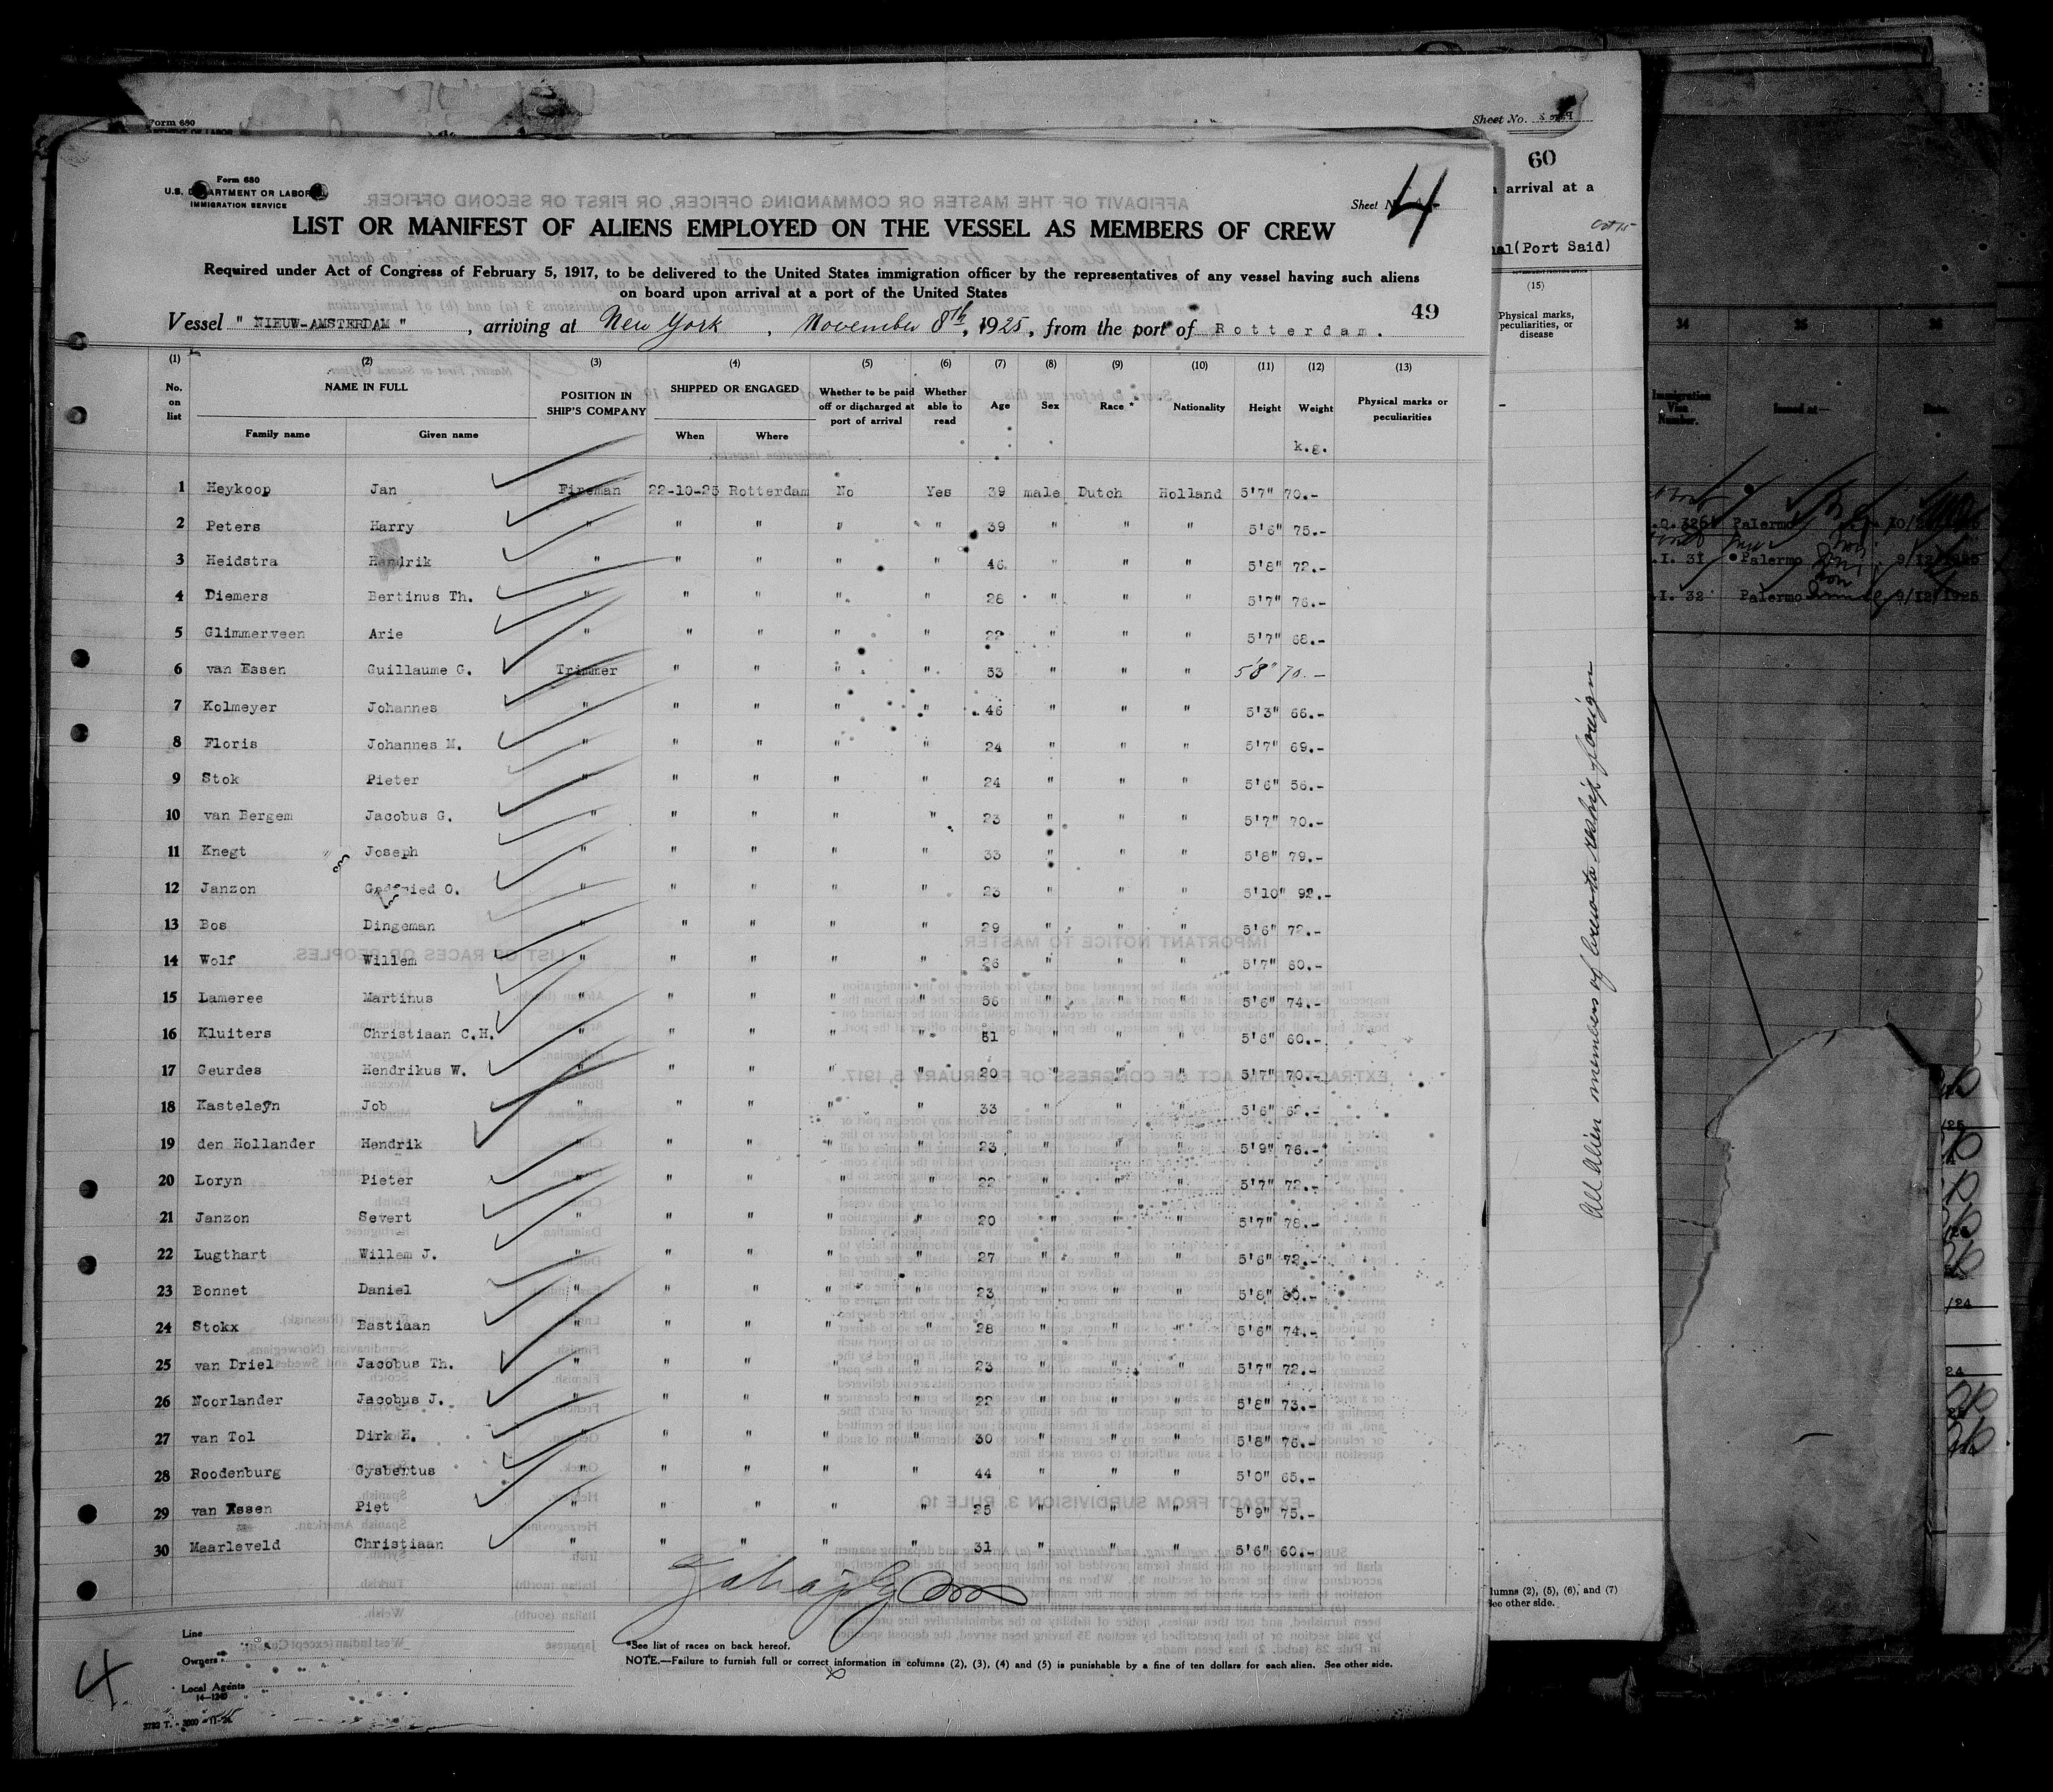 Form 680
Sheet No.
60
arrival at a
nal(Port Said)
(15)
Physical marks,
peculiarities, or
disease
Form 680
U.S. DEPARTMENT OF LABOR
IMMIGRATION SERVICE
Sheet No. 4
LIST OR MANIFEST OF ALIENS EMPLOYED ON THE VESSEL AS MEMBERS OF CREW
Required under Act of Congress of February 5, 1917, to be delivered to the United States immigration officer by the representatives of any vessel having such aliens
on board upon arrival at a port of the United States
49
Vessel " NIEUW-AMSTERDAM ", arriving at New York, November 8th, 1925, from the port of Rotterdam.
(1) (2) (3) (4) (5) (6) (7) (8) (9) (10) (11) (12) (13)
No. on list NAME IN FULL POSITION IN SHIP'S COMPANY SHIPPED OR ENGAGED Whether to be paid off or discharged at port of arrival Whether able to read Age Sex Race * Nationality Height Weight Physical marks or peculiarities
Family name Given name When Where k.g.
1 Heykoop Jan Fireman 22-10-25 Rotterdam No Yes 39 male Dutch Holland 5'7" 70.-
2 Peters Harry " " " " " 39 " " " 5'6" 75.-
3 Heidstra Hendrik " " " " " 46 " " " 5'8" 72.-
4 Diemers Bertinus Th. " " " " " 28 " " " 5'7" 76.-
5 Glimmerveen Arie " " " " " 22 " " " 5'7" 68.-
6 van Essen Guillaume G. Trimmer " " " " 53 " " " 5'8" 70.-
7 Kolmeyer Johannes " " " " " 46 " " " 5'3" 66.-
8 Floris Johannes M. " " " " " 24 " " " 5'7" 69.-
9 Stok Pieter " " " " " 24 " " " 5'6" 56.-
10 van Bergem Jacobus G. " " " " " 23 " " " 5'7" 70.-
11 Knegt Joseph " " " " " 33 " " " 5'8" 79.-
12 Janzon Godfried O. " " " " " 23 " " " 5'10" 92.-
13 Bos Dingeman " " " " " 29 " " " 5'6" 72.-
14 Wolf Willem " " " " " 26 " " " 5'7" 60.-
15 Lameree Martinus " " " " " 56 " " " 5'6" 74.-
16 Kluiters Christiaan C.H. " " " " " 51 " " " 5'6" 60.-
17 Geurdes Hendrikus W. " " " " " 20 " " " 5'7" 70.-
18 Kasteleyn Job " " " " " 33 " " " 5'6" 62.-
19 den Hollander Hendrik " " " " " 23 " " " 5'9" 76.-
20 Loryn Pieter " " " " " 22 " " " 5'7" 72.-
21 Janzon Severt " " " " " 20 " " " 5'7" 78.-
22 Lugthart Willem J. " " " " " 27 " " " 5'6" 72.-
23 Bonnet Daniel " " " " " 23 " " " 5'8" 80.-
24 Stokx Bastiaan " " " " " 28 " " " 5'6" 74.-
25 van Driel Jacobus Th. " " " " " 23 " " " 5'7" 72.-
26 Noorlander Jacobus J. " " " " " 22 " " " 5'8" 73.-
27 van Tol Dirk H. " " " " " 30 " " " 5'8" 76.-
28 Roodenburg Gysbertus " " " " " 44 " " " 5'0" 65.-
29 van Essen Piet " " " " " 25 " " " 5'9" 75.-
30 Maarleveld Christiaan " " " " " 31 " " " 5'6" 60.-
Line
Owners
Local Agents
14-1240
*See list of races on back hereof.
NOTE.—Failure to furnish full or correct information in columns (2), (3), (4) and (5) is punishable by a fine of ten dollars for each alien. See other side.
4
All Alien members of crew to reship foreign
lumns (2), (5), (6), and (7)
See other side.
34 35 36
Immigration Visa Number. Issued at— Date.
Palermo
I. 31 Palermo 9/12/1925
I. 32 Palermo 9/12/1925